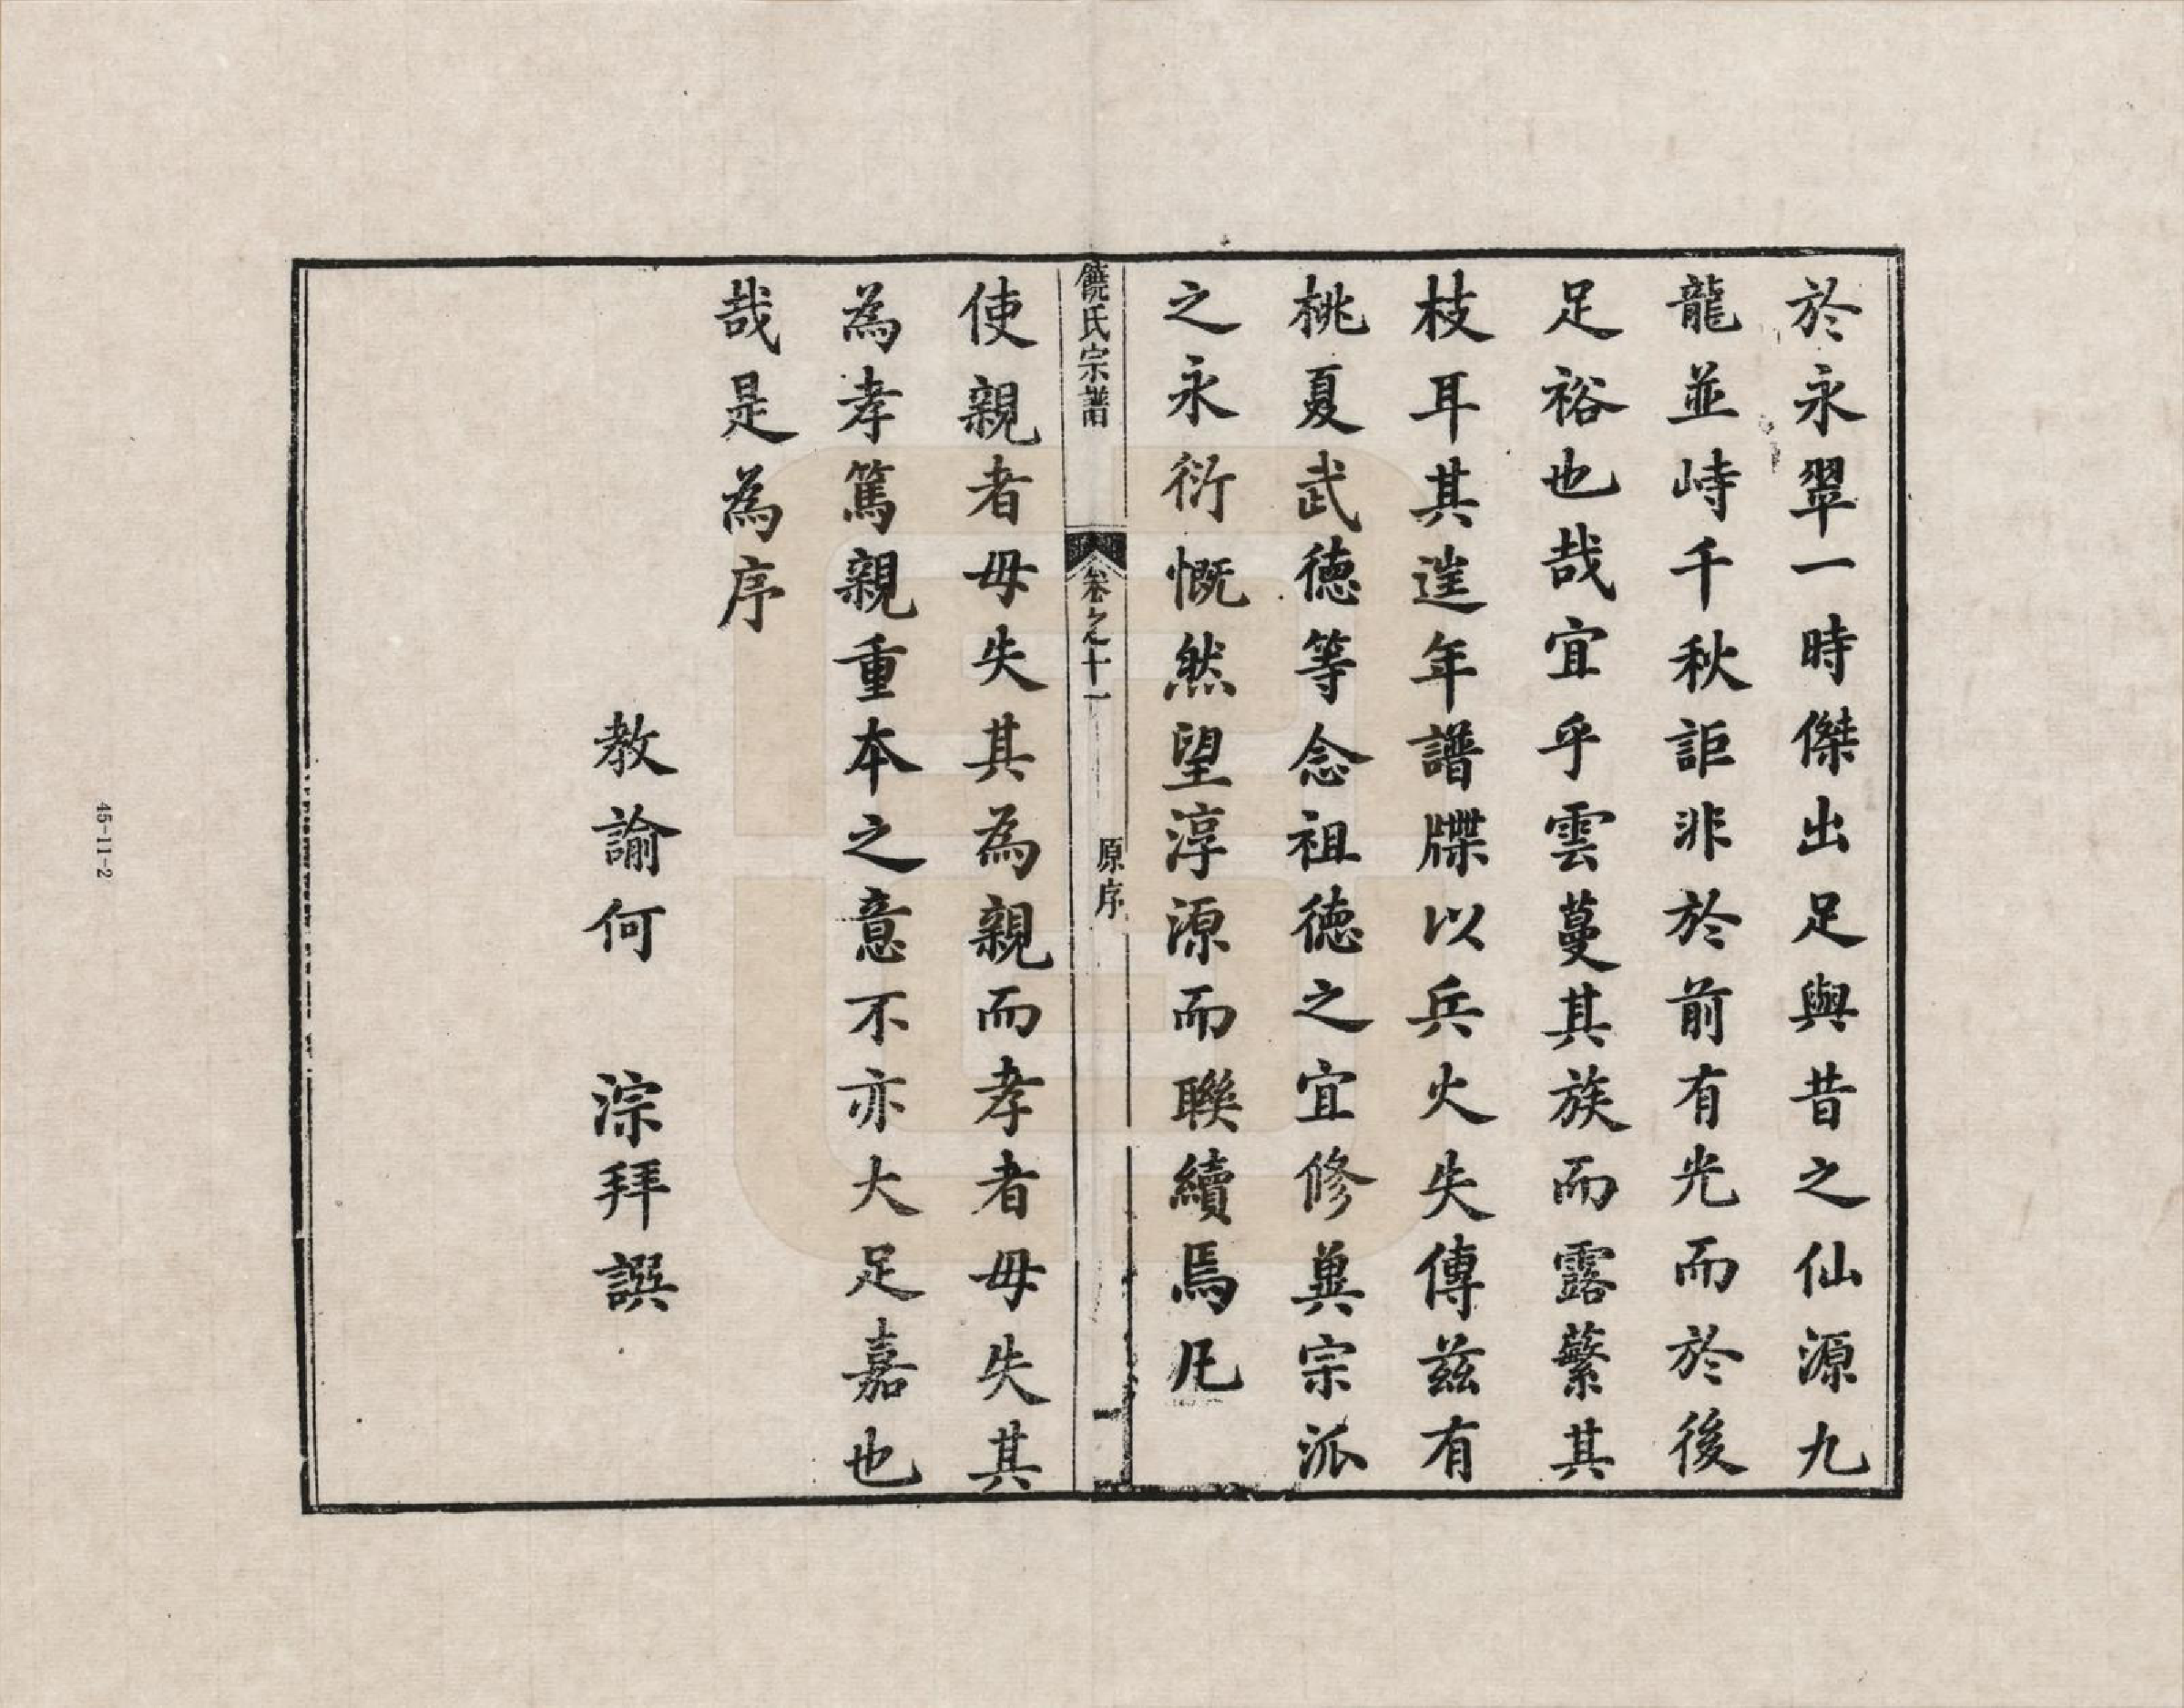 於永翠一時傑出足與昔之仙源九
龍並峙千秋詎非於前有光而於後
足裕也哉宜乎雲蔓其族而露蘩其
枝耳其遑年譜牒以兵火失傳茲有
桃夏武德等念祖德之宜修冀宗派
之永衍慨然望淳源而聯續焉凡
饒氏宗譜
卷之十一
原序
一
使親者毋失其為親而孝者毋失其
為孝篤親重本之意不亦大足嘉也
哉是為序
教諭何 淙拜譔
45-11-2